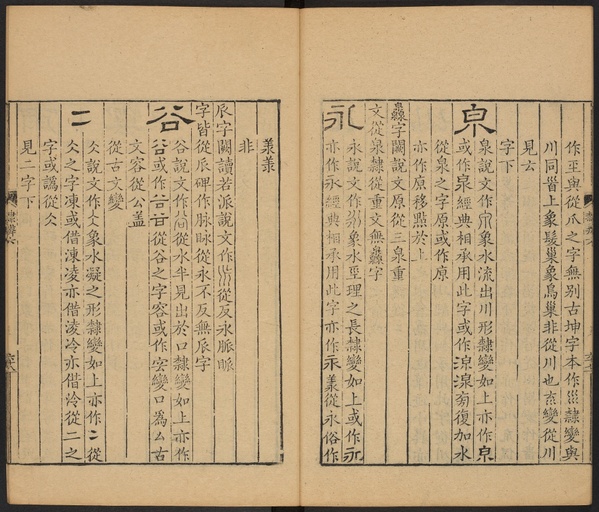 作巠與從爪之字無别古坤字本作巛隸變與
川同𩠐上象髮巢象鳥巢非從川也㐬變從川
見㐬
字下
泉
泉說文作象水流出川形隸變如上亦作泉
或作泉經典相承用此字或作湶湶旁復加水
從泉之字原或作原
亦作原移點於上
灥字闕說文原從三泉重
文從泉隸從重文無灥字
永
永說文作象水巠理之長隸變如上或作永
亦作永經典相承用此字亦作永羕從永俗作
羕羕
非
𠂢字闕讀若派說文作從反永脈
字皆從𠂢碑作脉眽從永不反無𠂢字
谷
谷說文作從水半見出於口隸變如上亦作
或作從谷之字容或作㝐變口爲厶古
文容從公蓋
從古文變
二
仌說文作仌象水凝之形隸變如上亦作冫從
仌之字凍或借涷凌亦借淩冷亦借泠從二之
字或譌從仌
見二字下
隸辨六